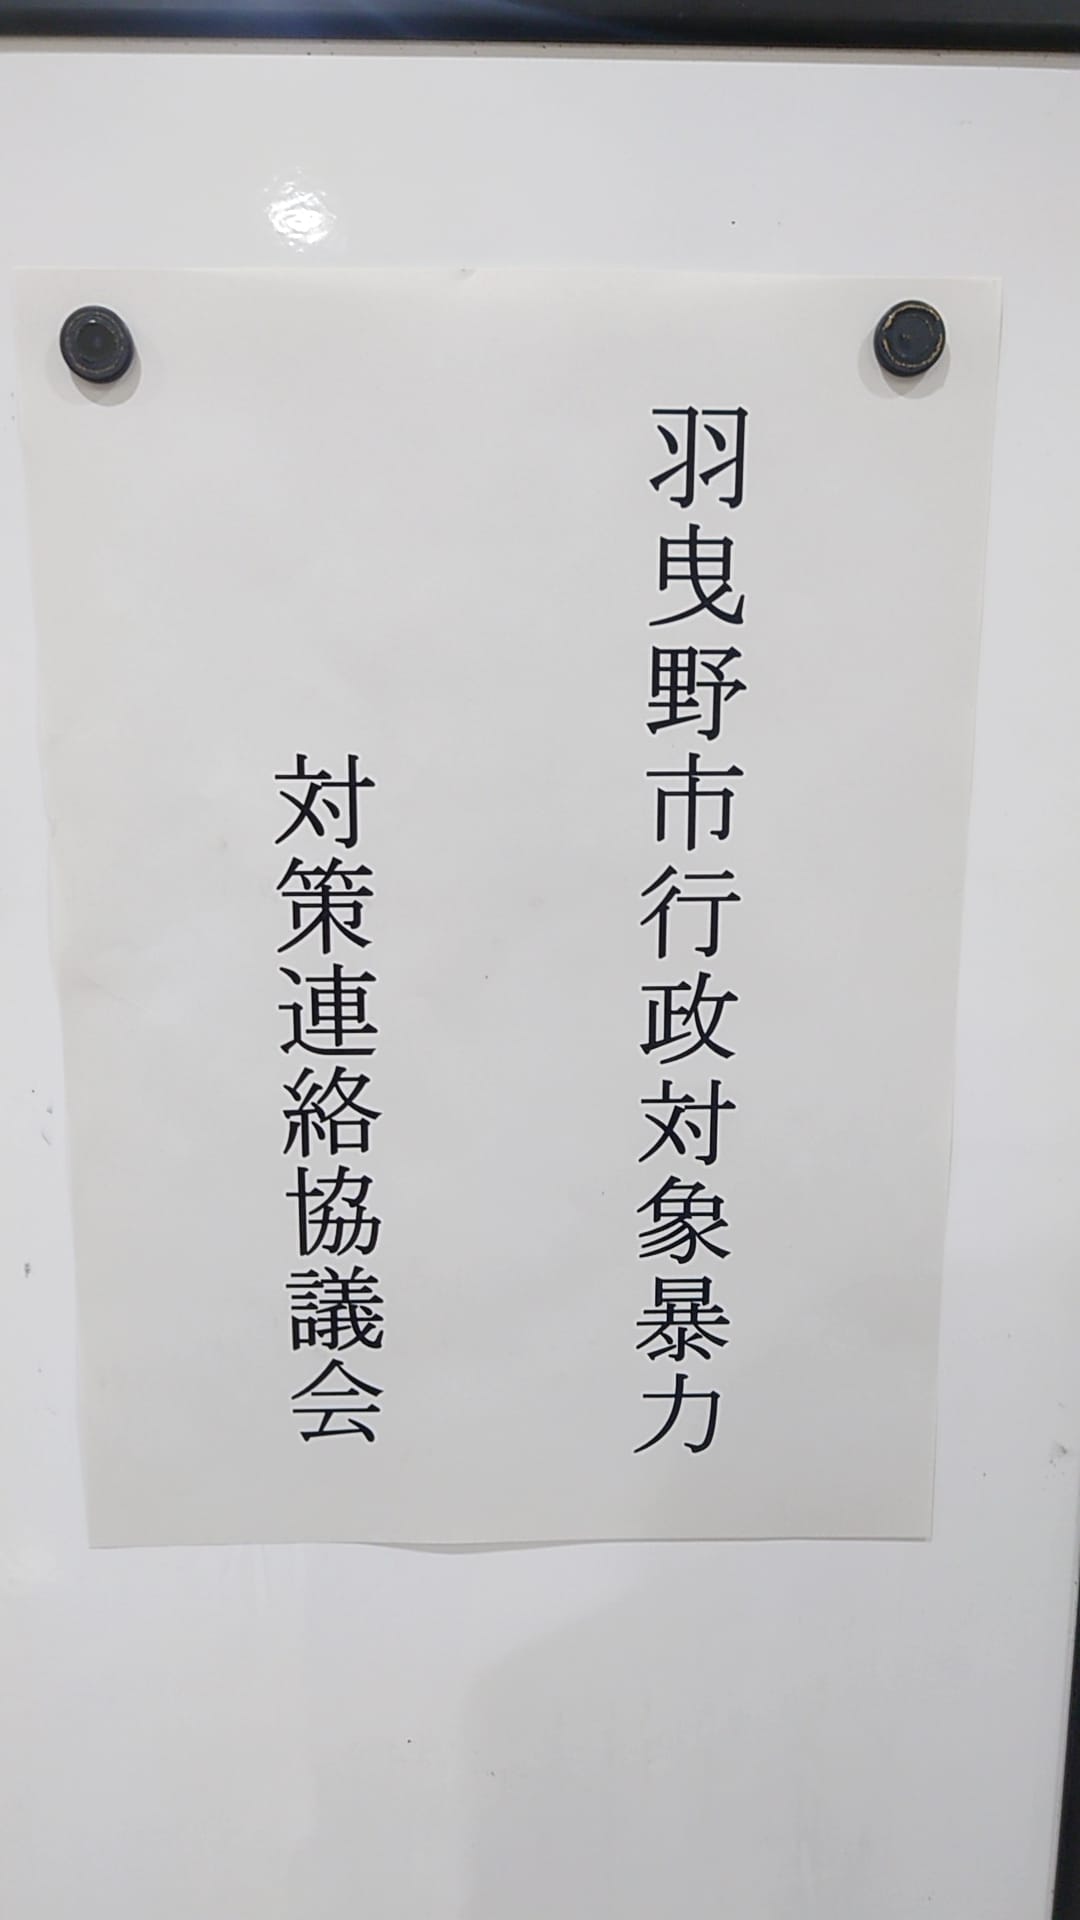 羽曳野市行政対象暴力
対策連絡協議会